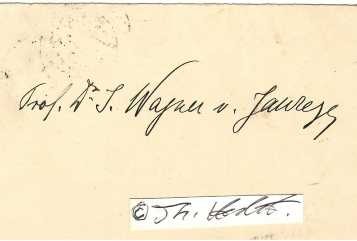 Prof. Dr. J. Wagner v. Jauregg
© Th.